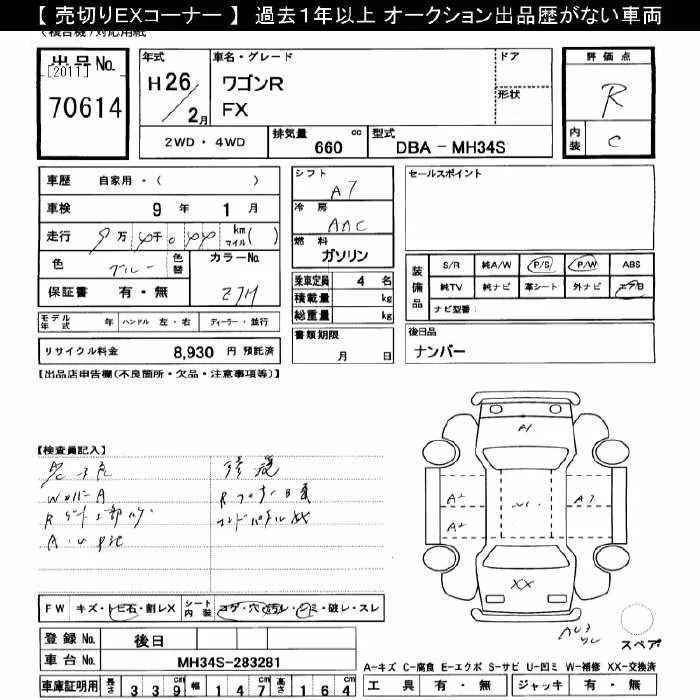 【 売切りEXコーナー 】 過去1年以上 オークション出品歴がない車両
(複合機)対応用紙
出品No.
[2011]
70614
年式
H26/2月
車名・グレード
ワゴンR
FX
ドア
形状
評価点
R
内装
C
2WD・4WD
排気量 660 cc
型式 DBA-MH34S
車歴 自家用・( )
車検 9年 1月
走行 万 千 km マイル( )
色 ブルー 色替
カラーNo. Z7H
保証書 有・無
シフト
A7
冷房
AAC
燃料
ガソリン
乗車定員 4 名
積載量 kg
総重量 kg
セールスポイント
装備品
S/R 純A/W P/S P/W ABS
純TV 純ナビ 革シート 外ナビ エアB
ナビ型番:
モデル年式 年 ハンドル 左・右 ディーラー・並行
書類期限
月 日
後日品
ナンバー
リサイクル料金 8,930 円 預託済
【出品店申告欄(不良箇所・欠品・注意事項等)】
【検査員記入】
修復
A1
A2
A2
A3
XX
FW キズ・トビ石・割レX シート内装 コゲ・穴・汚レ・シミ・破レ・スレ
登録No. 後日
車台No. MH34S-283281
車庫証明用 長さ 339 幅 147 高さ 164
スペア
A-キズ C-腐食 E-エクボ S-サビ U-凹ミ W-補修 XX-交換済
工具 有・無 ジャッキ 有・無